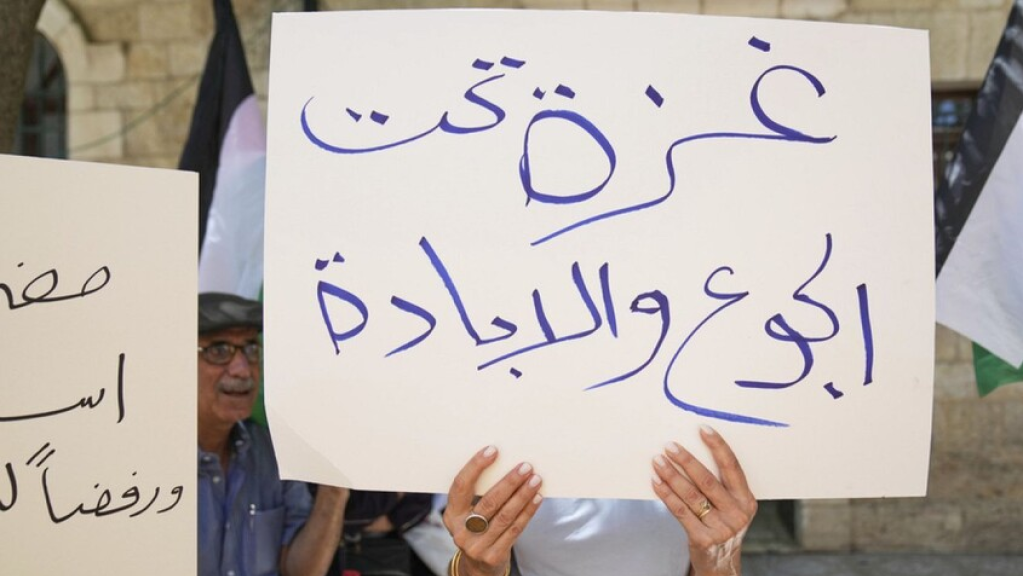 غزة تحت
الجوع والإبادة
اسـ
ورفضاً